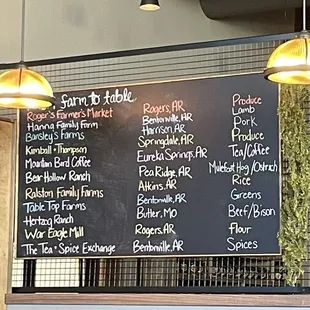 farm to table
Roger's Farmer's Market Rogers, AR Produce
Hanna Family Farm Bentonville, AR Lamb
Barsley's Farms Harrison, AR Pork
Kimball + Thompson Springdale, AR Produce
Mountain Bird Coffee Eureka Springs, AR Tea/Coffee
Bear Hollow Ranch Pea Ridge, AR Hog/Ostrich
Ralston Family Farms Atkins, AR Rice
Table Top Farms Bentonville, AR Greens
Hertzog Ranch Butler, MO Beef/Bison
War Eagle Mill Rogers, AR Flour
The Tea + Spice Exchange Bentonville, AR Spices